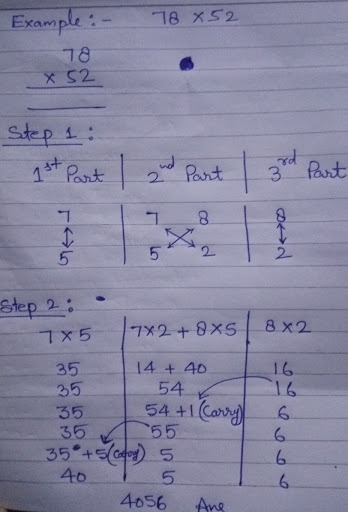 Example :- 78 × 52
78
× 52
Step 1 :
1st Part | 2nd Part | 3rd Part
7 | 7 8 | 8
5 | 5 2 | 2
Step 2 :
7 × 5 | 7×2 + 8×5 | 8 × 2
35 | 14 + 40 | 16
35 | 54 | 16
35 | 54 + 1 (Carry) | 6
35 | 55 | 6
35 + 5 (Carry) | 5 | 6
40 | 5 | 6
4056 Ans